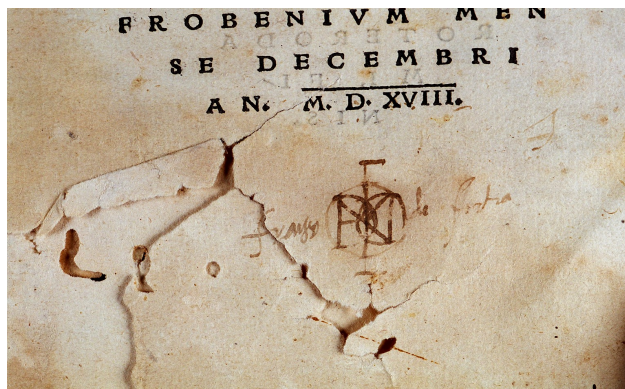 FROBENIVM MEN
SE DECEMBRI
AN. M. D. XVIII.
de